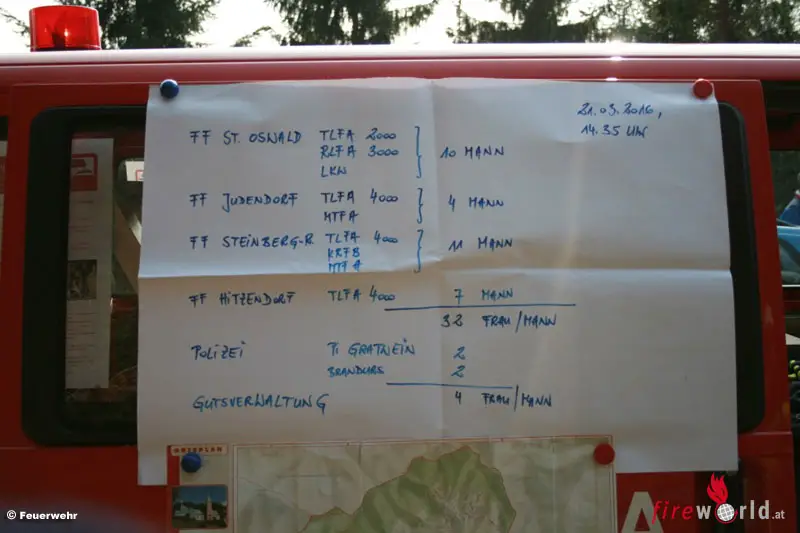 21.03.2016,
14.35 UHR
FF ST. OSWALD TLFA 2000
RLFA 3000 10 MANN
LKW
FF JUDENDORF TLFA 4000 4 MANN
MTFA
FF STEINBERG-R. TLFA 4000 11 MANN
KRFB
MTFA
FF HITZENDORF TLFA 4000 7 MANN
32 FRAU/MANN
POLIZEI PI GRATWEIN 2
BRANDURS 2
GUTSVERWALTUNG 4 FRAU/MANN
ORTSPLAN
A
© Feuerwehr
fireworld.at